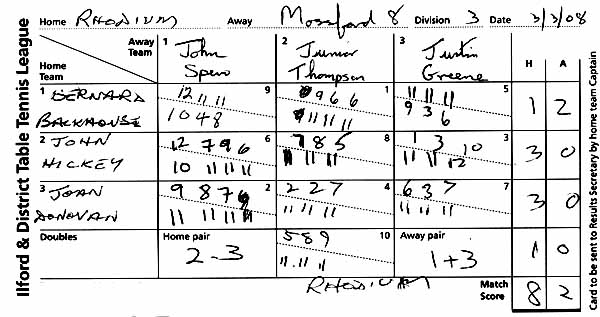 Home RHODIUM Away Mossford 8 Division 3 Date 3/3/08
Ilford & District Table Tennis League
Card to be sent to Results Secretary by home team Captain
Away Team
Home Team
1 John Spero
2 Junior Thompson
3 Justin Greene
H A
1 BERNARD BACKHOUSE
9
12 11 11
10 4 8
1
9 6 6
11 11 11
5
11 11 11
9 3 6
1 2
2 JOHN HICKEY
6
12 7 9 6
10 11 11 11
8
7 8 5
11 11 11
3
1 3 10
11 11 12
3 0
3 JOAN DONOVAN
2
9 8 7 6
11 11 11
4
2 2 7
11 11 11
7
6 3 7
11 11 11
3 0
Doubles
Home pair
2-3
10
5 8 9
11 11 11
Away pair
1+3
1 0
RHODIUM
Match Score
8 2